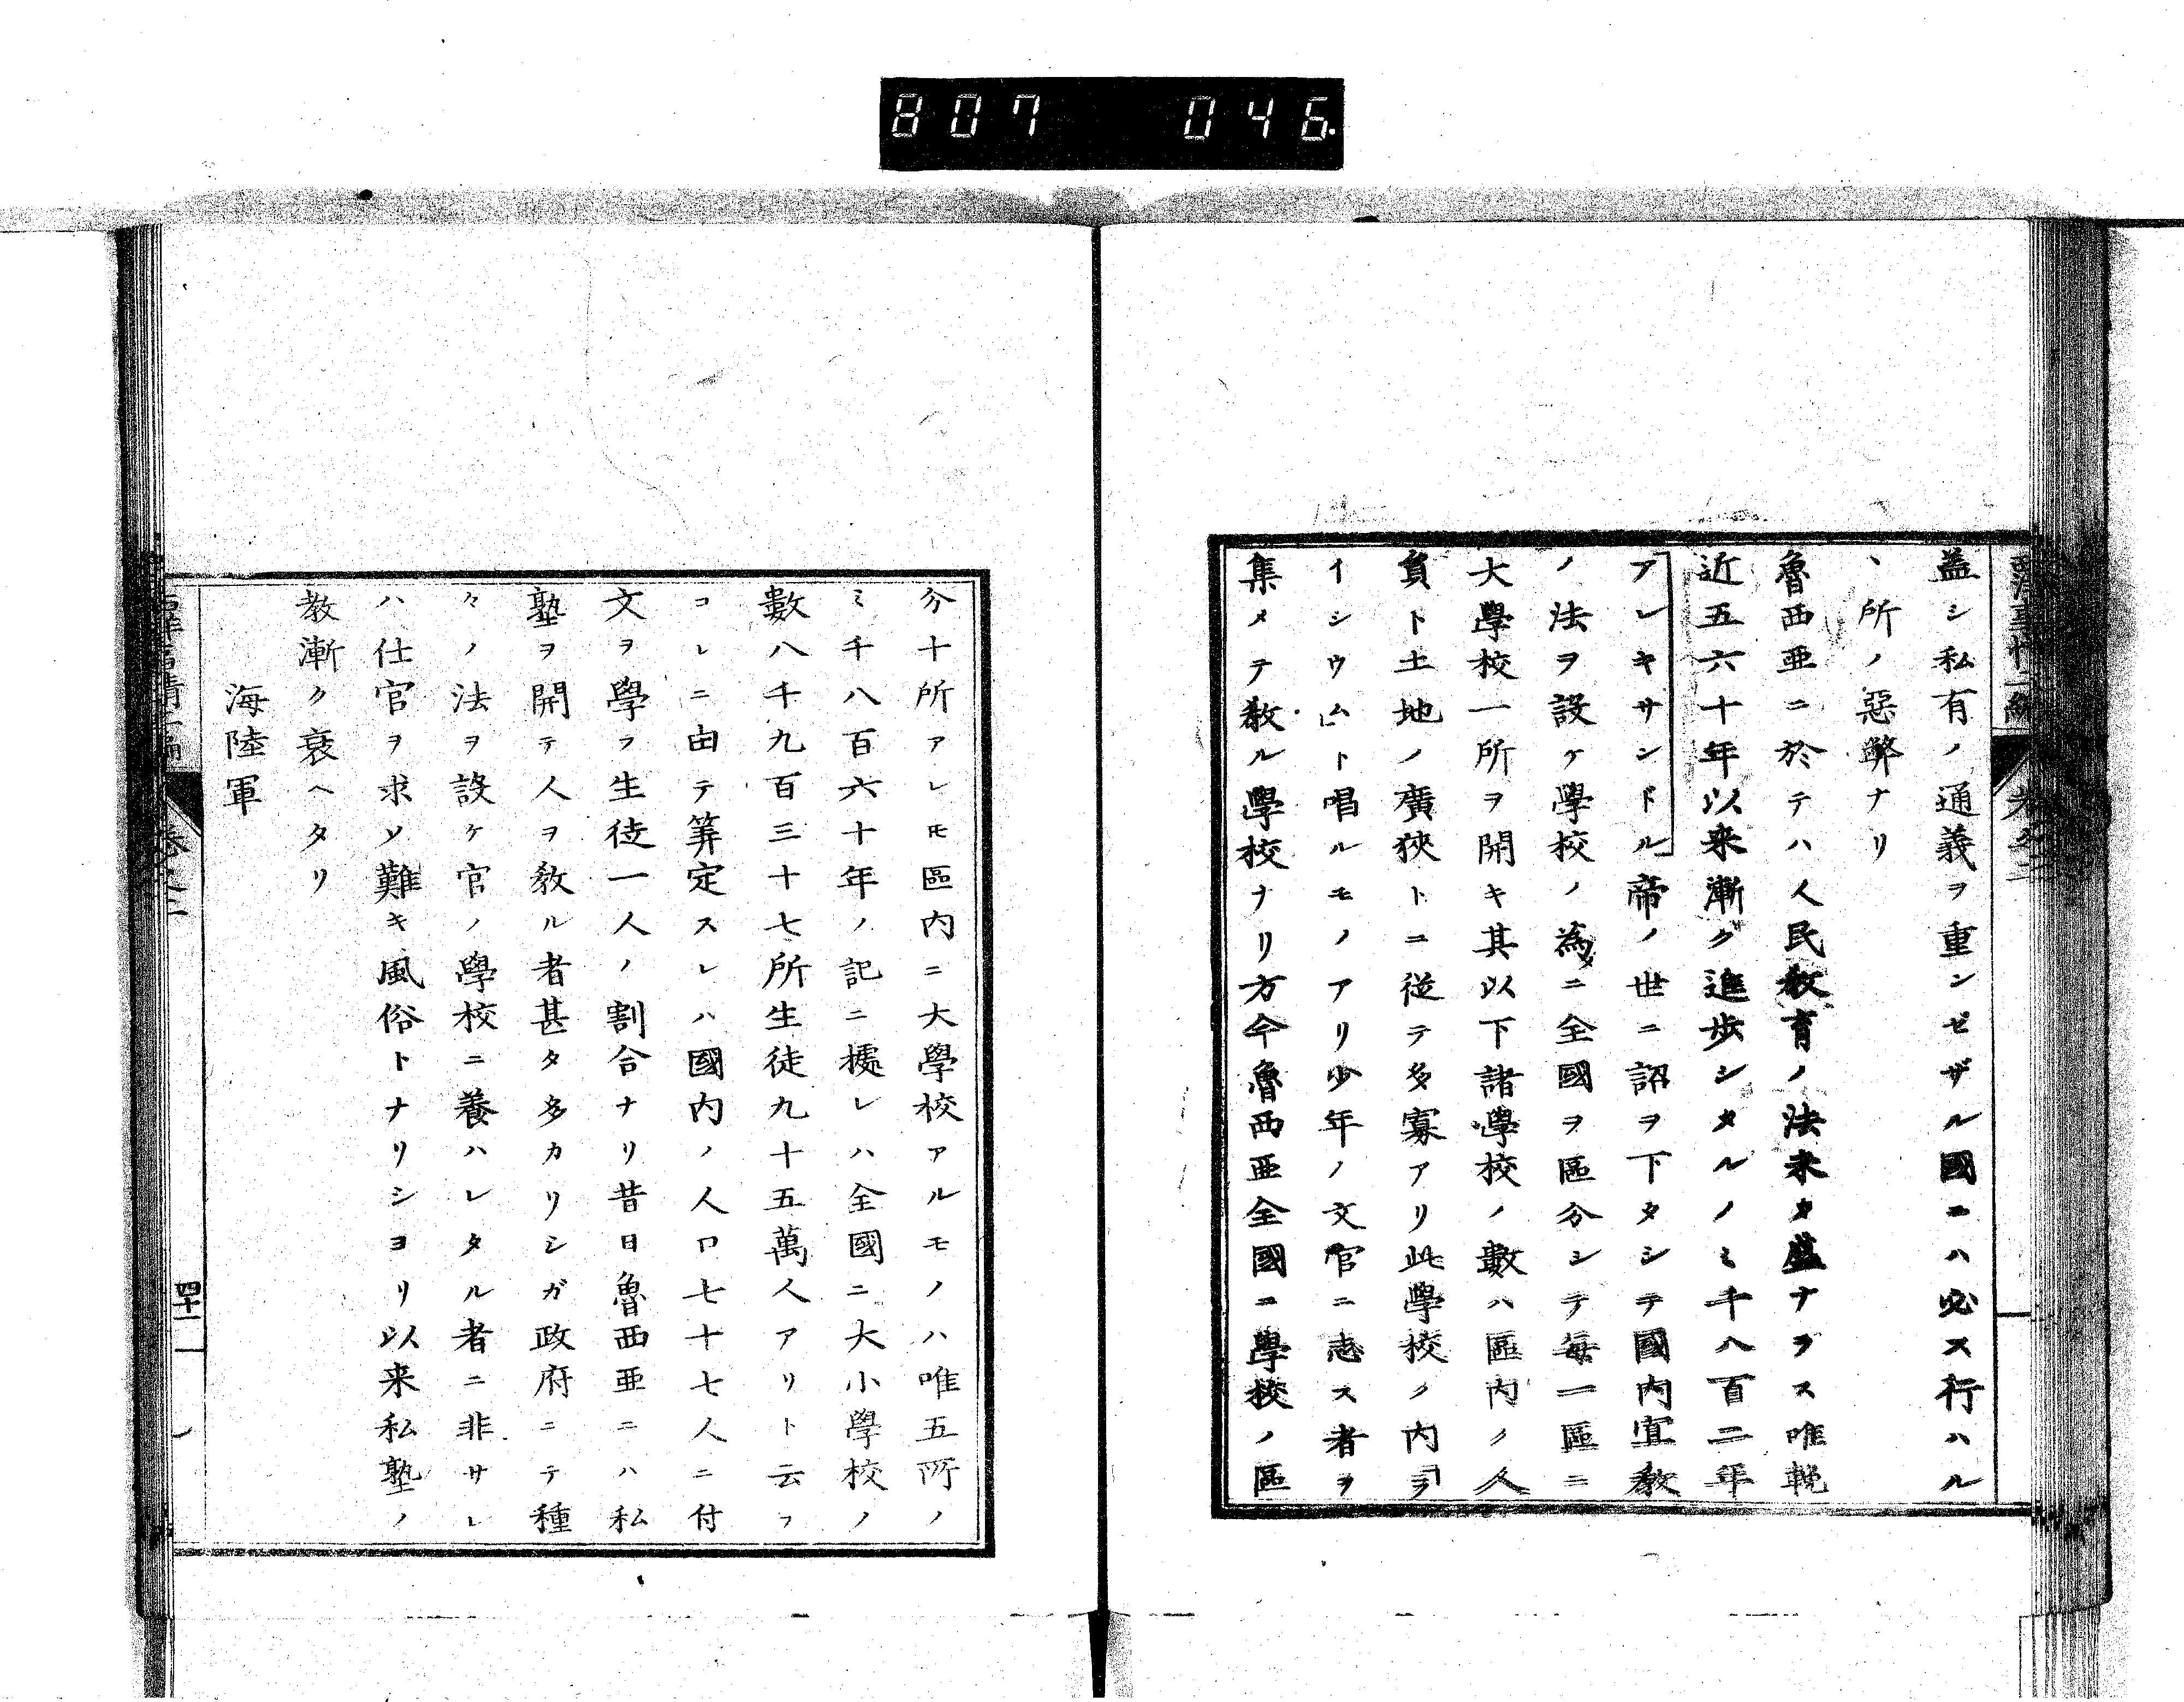 807 046
西洋事情二編 巻之二
蓋シ私有ノ通義ヲ重ンゼザル國ニハ必ス行ハル
丶所ノ惡弊ナリ
魯西亜ニ於テハ人民教育ノ法未タ盛ナラス唯輓
近五六十年以来漸ク進歩シタルノミ千八百二年
アレキサンドル帝ノ世ニ詔ヲ下タシテ國内宜教
ノ法ヲ設ケ學校ノ為メニ全國ヲ區分シテ毎一區ニ
大學校一所ヲ開キ其以下諸學校ノ數ハ區内ノ人
員ト土地ノ廣狹トニ從テ多寡アリ此學校ノ内ヲ
イシウムト唱ルモノアリ少年ノ文官ニ志ス者ヲ
集メテ教ル學校ナリ方今魯西亜全國ニ學校ノ區
分十所アレモ區内ニ大學校アルモノハ唯五所ノ
ミ千八百六十年ノ記ニ據レハ全國ニ大小學校ノ
數八千九百三十七所生徒九十五萬人アリト云フ
コレニ由テ筭定スレハ國内ノ人口七十七人ニ付
文ヲ學フ生徒一人ノ割合ナリ昔日魯西亜ニハ私
塾ヲ開テ人ヲ教ル者甚タ多カリシガ政府ニテ種
々ノ法ヲ設ケ官ノ學校ニ養ハレタル者ニ非サレ
ハ仕官ヲ求メ難キ風俗トナリシヨリ以来私塾ノ
教漸ク衰ヘタリ
海陸軍
西洋事情二編 巻之二 四十一